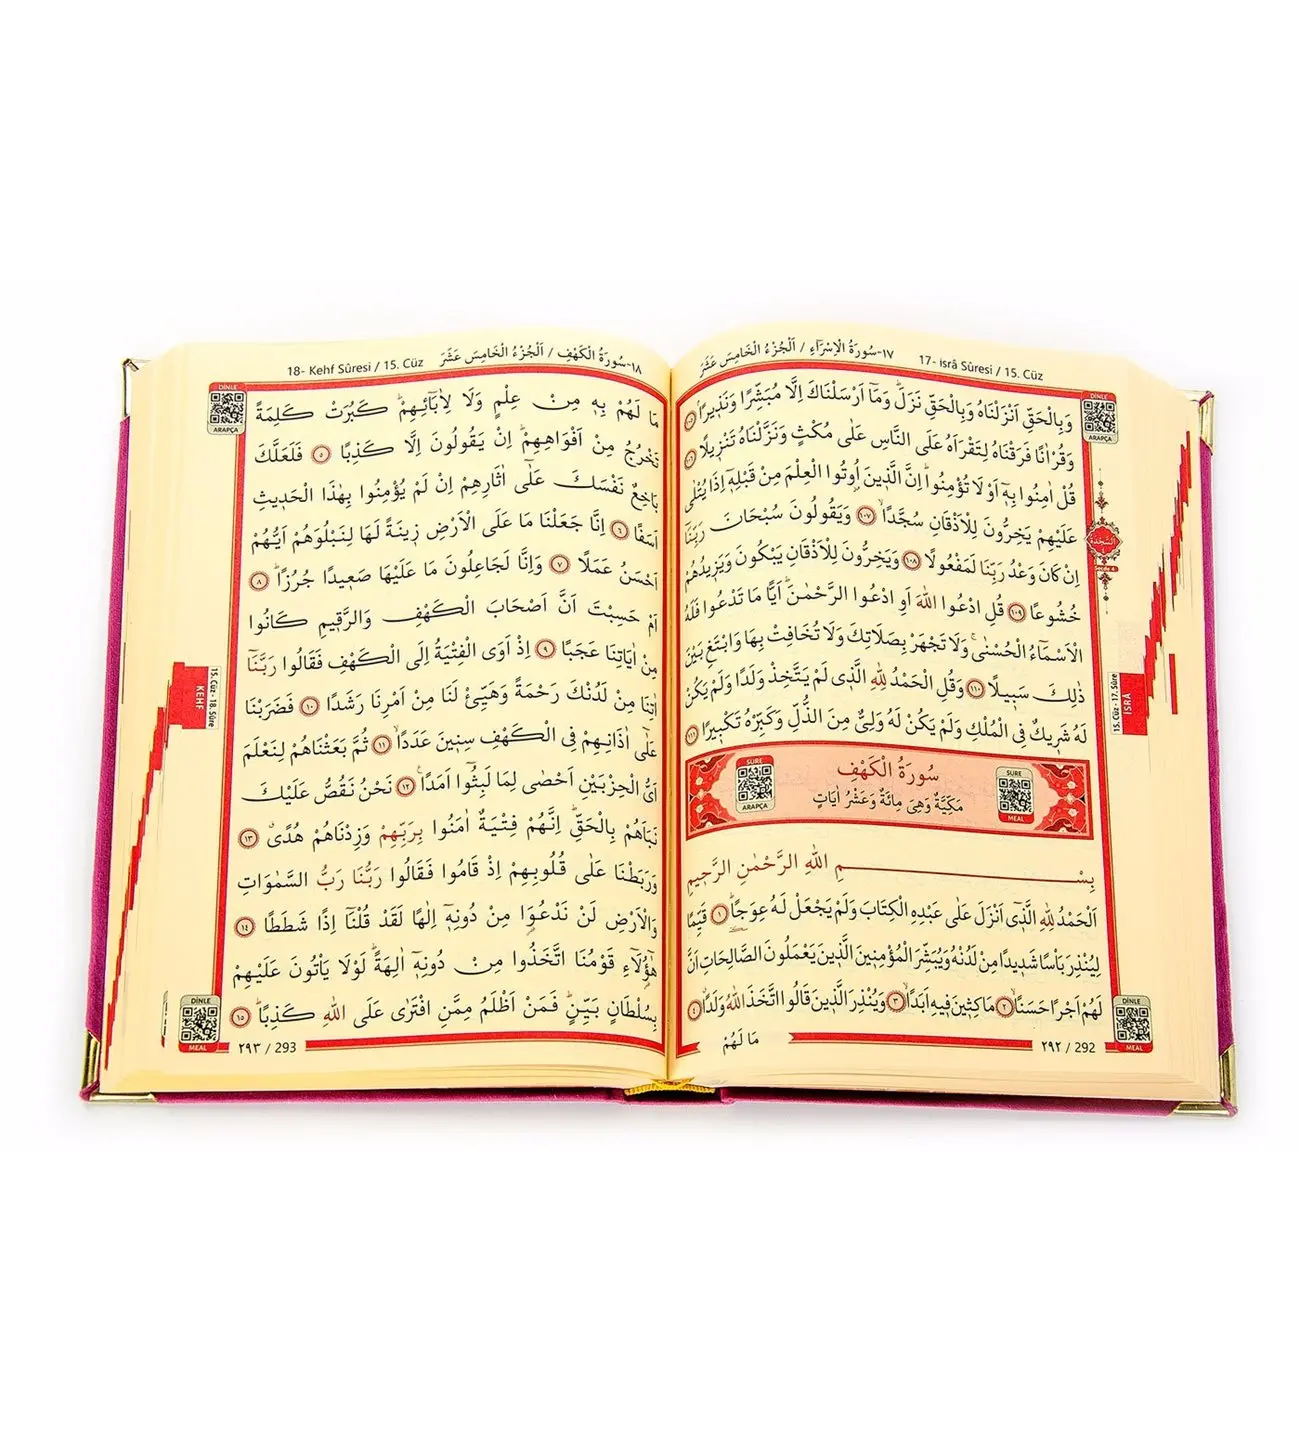 ١٧-سُورَةُ الْاِسْرَاءِ / اَلْجُزْءُ الْخَامِسَ عَشَرَ
17- isrâ Sûresi / 15. Cüz
DİNLE
ARAPÇA
وَبِالْحَقِّ اَنْزَلْنَاهُ وَبِالْحَقِّ نَزَلَۜ وَمَٓا اَرْسَلْنَاكَ اِلَّا مُبَشِّرًا وَنَذ۪يرًاۢ ﴿١٠٥﴾
وَقُرْاٰنًا فَرَقْنَاهُ لِتَقْرَاَهُ عَلَى النَّاسِ عَلٰى مُكْثٍ وَنَزَّلْنَاهُ تَنْز۪يلًا ﴿١٠٦﴾
قُلْ اٰمِنُوا بِه۪ٓ اَوْ لَا تُؤْمِنُواۜ اِنَّ الَّذ۪ينَ اُو۫تُوا الْعِلْمَ مِنْ قَبْلِه۪ٓ اِذَا يُتْلٰى
عَلَيْهِمْ يَخِرُّونَ لِلْاَذْقَانِ سُجَّدًاۙ ﴿١٠٧﴾ وَيَقُولُونَ سُبْحَانَ رَبِّنَٓا
اِنْ كَانَ وَعْدُ رَبِّنَا لَمَفْعُولًا ﴿١٠٨﴾ وَيَخِرُّونَ لِلْاَذْقَانِ يَبْكُونَ وَيَز۪يدُهُمْ
خُشُوعًا ﴿١٠٩﴾ قُلِ ادْعُوا اللّٰهَ اَوِ ادْعُوا الرَّحْمٰنَۜ اَيًّا مَا تَدْعُوا فَلَهُ
الْاَسْمَٓاءُ الْحُسْنٰىۚ وَلَا تَجْهَرْ بِصَلَاتِكَ وَلَا تُخَافِتْ بِهَا وَابْتَغِ بَيْنَ
ذٰلِكَ سَب۪يلًا ﴿١١٠﴾ وَقُلِ الْحَمْدُ لِلّٰهِ الَّذ۪ي لَمْ يَتَّخِذْ وَلَدًا وَلَمْ يَكُنْ
لَهُ شَر۪يكٌ فِي الْمُلْكِ وَلَمْ يَكُنْ لَهُ وَلِيٌّ مِنَ الذُّلِّ وَكَبِّرْهُ تَكْب۪يرًا ﴿١١١﴾
اَلسَّجْدَةُ
Secde 4
15. Cüz - 17. Sûre
İSRÂ
SURE
ARAPÇA
سُورَةُ الْكَهْفِ
مَكِّيَّةٌ وَهِيَ مِائَةٌ وَعَشْرُ اٰيَاتٍ
SURE
MEAL
بِسْمِ اللّٰهِ الرَّحْمٰنِ الرَّح۪يمِ
اَلْحَمْدُ لِلّٰهِ الَّذ۪ٓي اَنْزَلَ عَلٰى عَبْدِهِ الْكِتَابَ وَلَمْ يَجْعَلْ لَهُ عِوَجًاۜ ﴿١﴾ قَيِّمًا
لِيُنْذِرَ بَاْسًا شَد۪يدًا مِنْ لَدُنْهُ وَيُبَشِّرَ الْمُؤْمِن۪ينَ الَّذ۪ينَ يَعْمَلُونَ الصَّالِحَاتِ اَنَّ
لَهُمْ اَجْرًا حَسَنًاۙ ﴿٢﴾ مَاكِث۪ينَ ف۪يهِ اَبَدًاۙ ﴿٣﴾ وَيُنْذِرَ الَّذ۪ينَ قَالُوا اتَّخَذَ اللّٰهُ وَلَدًاۗ ﴿٤﴾
DİNLE
MEAL
مَا لَهُمْ
٢٩٢ / 292
18- Kehf Sûresi / 15. Cüz
١٨-سُورَةُ الْكَهْفِ / اَلْجُزْءُ الْخَامِسَ عَشَرَ
DİNLE
ARAPÇA
مَا لَهُمْ بِه۪ مِنْ عِلْمٍ وَلَا لِاٰبَٓائِهِمْۜ كَبُرَتْ كَلِمَةً
تَخْرُجُ مِنْ اَفْوَاهِهِمْۜ اِنْ يَقُولُونَ اِلَّا كَذِبًا ﴿٥﴾ فَلَعَلَّكَ
بَاخِعٌ نَفْسَكَ عَلٰٓى اٰثَارِهِمْ اِنْ لَمْ يُؤْمِنُوا بِهٰذَا الْحَد۪يثِ
اَسَفًا ﴿٦﴾ اِنَّا جَعَلْنَا مَا عَلَى الْاَرْضِ ز۪ينَةً لَهَا لِنَبْلُوَهُمْ اَيُّهُمْ
اَحْسَنُ عَمَلًا ﴿٧﴾ وَاِنَّا لَجَاعِلُونَ مَا عَلَيْهَا صَع۪يدًا جُرُزًاۜ ﴿٨﴾
اَمْ حَسِبْتَ اَنَّ اَصْحَابَ الْكَهْفِ وَالرَّق۪يمِ كَانُوا
مِنْ اٰيَاتِنَا عَجَبًا ﴿٩﴾ اِذْ اَوَى الْفِتْيَةُ اِلَى الْكَهْفِ فَقَالُوا رَبَّنَٓا
اٰتِنَا مِنْ لَدُنْكَ رَحْمَةً وَهَيِّئْ لَنَا مِنْ اَمْرِنَا رَشَدًا ﴿١٠﴾ فَضَرَبْنَا
عَلٰٓى اٰذَانِهِمْ فِي الْكَهْفِ سِن۪ينَ عَدَدًاۙ ﴿١١﴾ ثُمَّ بَعَثْنَاهُمْ لِنَعْلَمَ
اَيُّ الْحِزْبَيْنِ اَحْصٰى لِمَا لَبِثُٓوا اَمَدًا۟ ﴿١٢﴾ نَحْنُ نَقُصُّ عَلَيْكَ
نَبَاَهُمْ بِالْحَقِّۜ اِنَّهُمْ فِتْيَةٌ اٰمَنُوا بِرَبِّهِمْ وَزِدْنَاهُمْ هُدًىۗ ﴿١٣﴾
وَرَبَطْنَا عَلٰى قُلُوبِهِمْ اِذْ قَامُوا فَقَالُوا رَبُّنَا رَبُّ السَّمٰوَاتِ
وَالْاَرْضِ لَنْ نَدْعُوَ۬ا مِنْ دُونِه۪ٓ اِلٰهًا لَقَدْ قُلْنَٓا اِذًا شَطَطًا ﴿١٤﴾
هٰٓؤُ۬لَٓاءِ قَوْمُنَا اتَّخَذُوا مِنْ دُونِه۪ٓ اٰلِهَةًۜ لَوْلَا يَاْتُونَ عَلَيْهِمْ
بِسُلْطَانٍ بَيِّنٍۜ فَمَنْ اَظْلَمُ مِمَّنِ افْتَرٰى عَلَى اللّٰهِ كَذِبًاۜ ﴿١٥﴾
15. Cüz - 18. Sûre
KEHF
DİNLE
MEAL
٢٩٣ / 293